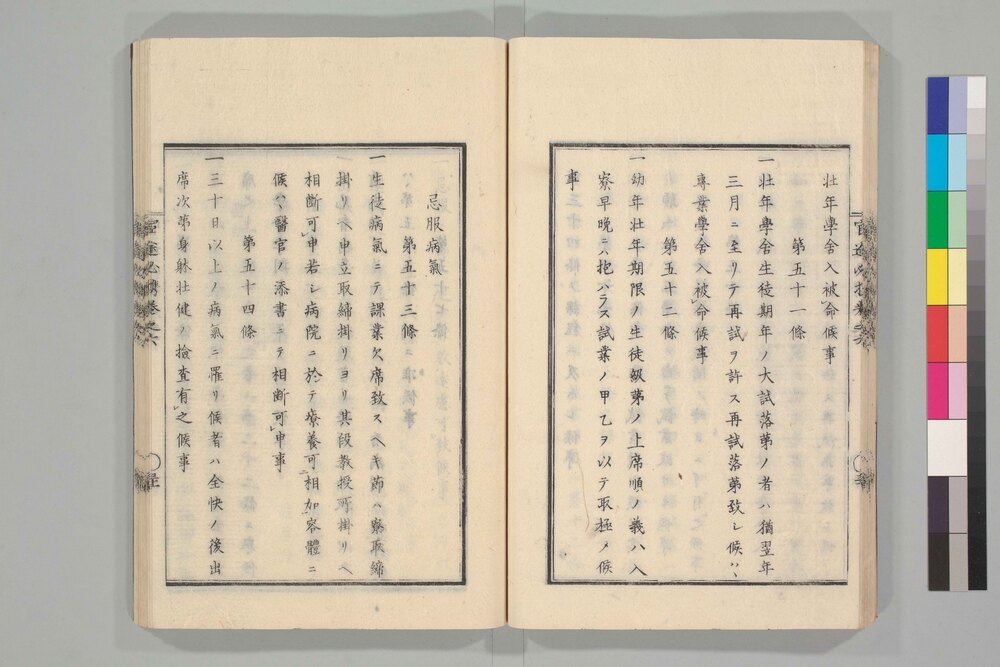 壮年學舎入被命候事
第五十一條
一壮年學舎生徒期年ノ大試落第ノ者ハ猶翌年
三月ニ至リテ再試ヲ許ス再試落第致シ候ハヽ
專業學舎入被命候事
第五十二條
一幼年壮年期限ノ生徒級第ノ上席順ノ義ハ入
寮早晩ニ抱ハラス試業ノ甲乙ヲ以テ取極メ候
事
忌服病氣
第五十三條
一生徒病氣ニテ課業欠席致スヘキ節ハ寮取締
掛リヘ申立取締掛リヨリ其段教授所掛リヘ
相斷可申若シ病院ニ於テ療養可相加容體ニ
候ハヽ醫官ノ添書ニテ相斷可申事
第五十四條
一三十日以上ノ病氣ニ罹リ候者ハ全快ノ後出
席次第身躰壮健ノ撿査有之候事